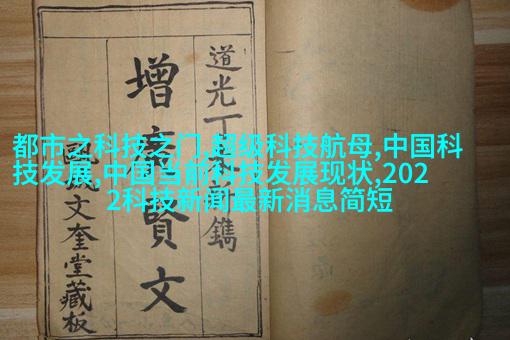 道光丁
鐫
增廣賢文
文奎堂藏板
都市之科技之门,超级科技航母,中国科
技发展,中国当前科技发展现状,202
2科技新闻最新消息简短